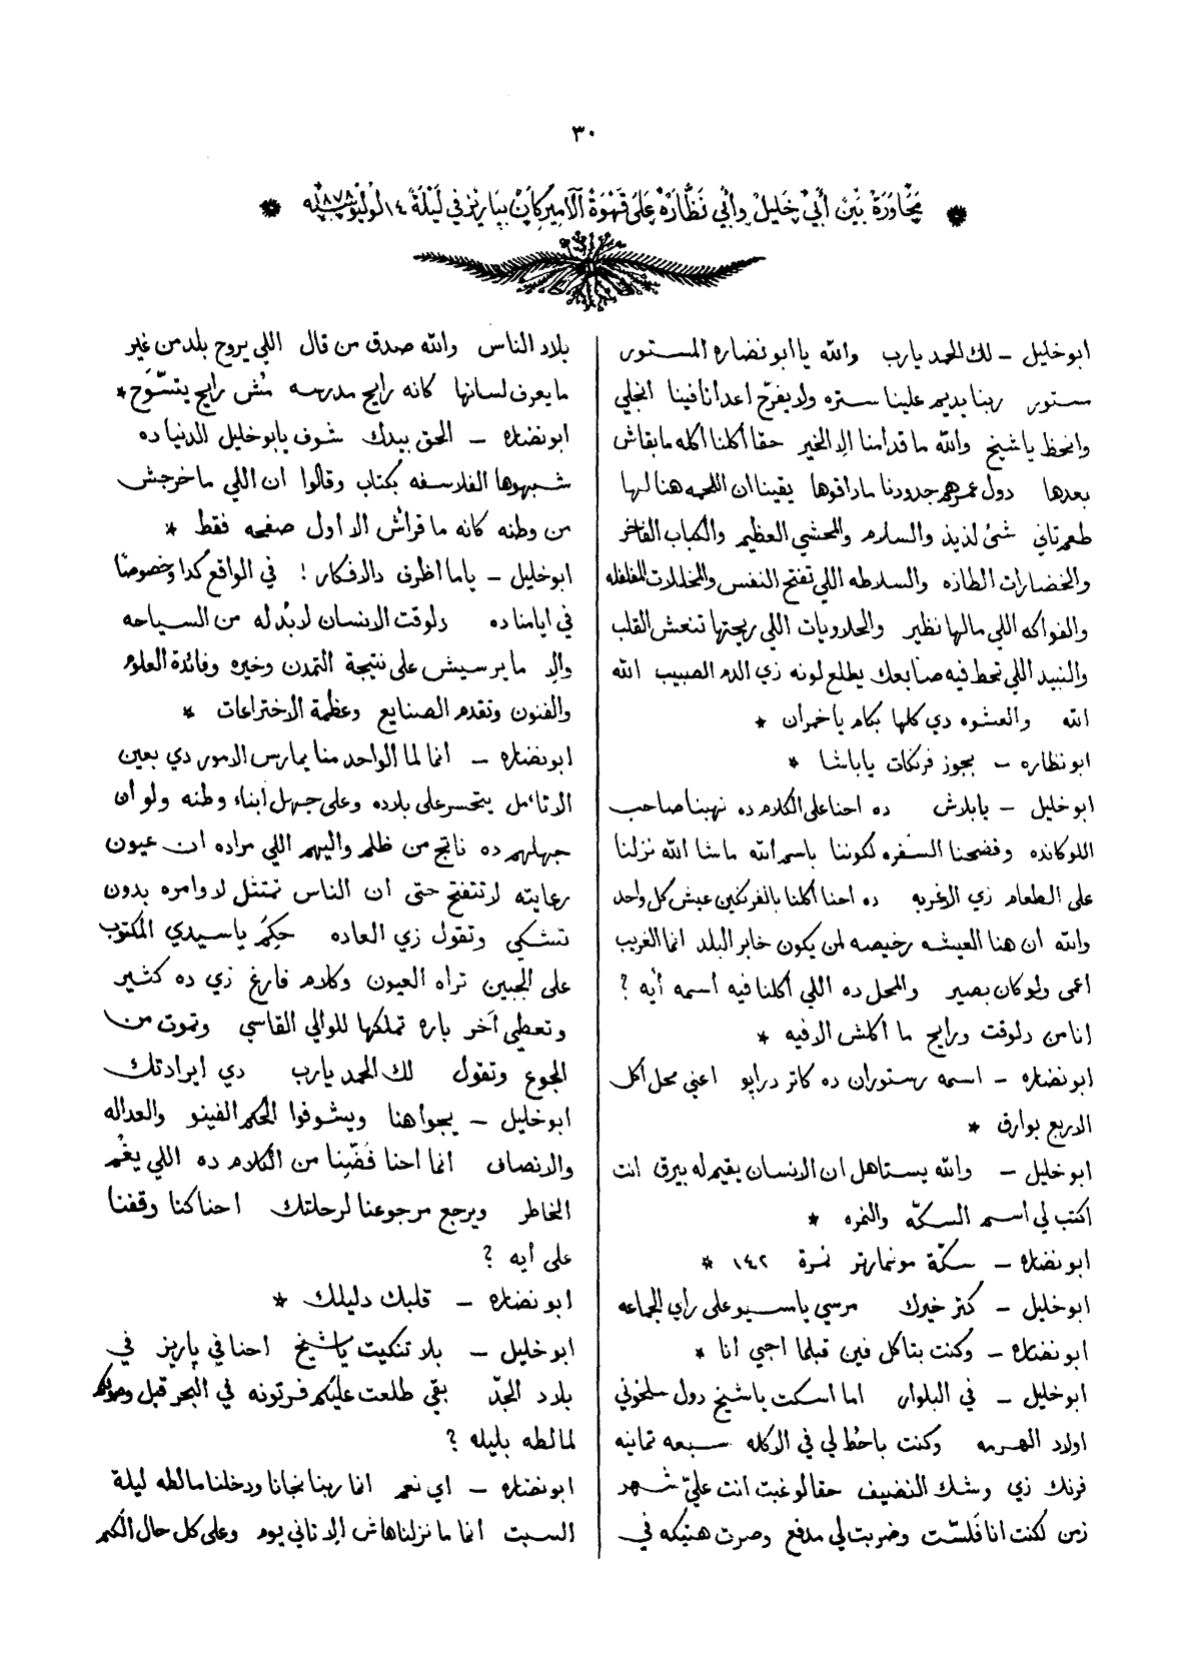 ٣٠
* محاورة بين أبي خليل وأبي نظارة على قهوة الأميركان بباريز في ليلة ١٤ لوليو سنة ١٨٧٨ *
ابو خليل – لك الحمد يارب والله يا ابو نضاره المستور
مستور ربنا يديم علينا ستره ولا يفرّح اعدانا فينا انجلي
وانحظ يا شيخ والله ما قدامنا الا الخير حقا أكلنا أكله ما بقاش
بعدها دول عمرهم جدودنا ما داقوها يقينا ان اللحمه هنا لها
طعم تاني شئ لذيذ والسلام والمحشي العظيم والكباب الفاخر
والخضارات الطازه والسلاطه اللي تفتح النفس والمخللات المفلفله
والفواكه اللي مالها نظير والحلاويات اللي ريحتها تنعش القلب
والنبيد اللي تحط فيه صابعك يطلع لونه زي الدم الصبيب الله
الله والعشوه دي كلها بكام يا خمران *
ابو نظاره – بجوز فرنكات يا باشا *
ابو خليل – يا بلاش ده احنا على الكلام ده نهبنا صاحب
اللوكانده وفضحنا السفره لكوننا باسم الله ماشا الله نزلنا
على الطعام زي الاغربه ده احنا أكلنا بالفرنكين عيش كل واحد
والله أن هنا العيشه رخيصه لمن يكون خابر البلد انما الغريب
اعمى ولو كان بصير والمحل ده اللي أكلنا فيه أسمه أيه ؟
انا من دلوقت ورايح ما أكلش الا فيه *
ابو نضاره – اسمه رستوران ده كاتر درابو اعني محل أكل
الاربع بوارق *
ابو خليل – والله يستاهل ان الانسان يقيم له بيرق انت
أكتب لي اسم السكّه والنمره *
ابو نضاره – سكّة مونمارتر نمرة ١٤٢ *
ابو خليل – كتر خيرك مرسي يا مسيو على راي الجماعه
ابو نضاره – وكنت بتاكل فين قبلما اجي أنا *
ابو خليل – في البلوار اما اسكت يا شيخ دول سلخوني
اولاد الهرمه وكنت باحُط لي في الاكله سبعه تمانيه
فرنك زي وشك النضيف حقا لو غبت انت عليّ شهر
زمن لكنت انا فلسّت وضربت لي مدفع وصرت هتيكه في
بلاد الناس والله صدق من قال اللي يروح بلد من غير
ما يعرف لسانها كانه رايح مدرسه مُش رايح يتسّوَح *
ابو نضاره – الحق بيدك شوف يا بو خليل الدنيا ده
شبهوها الفلاسفه بكتاب وقالوا ان اللي ما خرجش
من وطنه كانه ما قرأش الا اول صفحه فقط *
ابو خليل – ياما اظرف دالافكار ! في الواقع كدا وخصوصًا
في ايامنا ده دلوقت الانسان لابُد له من السياحه
والا ما يرسيش على نتيجة التمدن وخيره وفائدة العلوم
والفنون وتقدم الصنايع وعظمة الاختراعات *
ابو نضاره – انما لما الواحد منا يمارس الامور دي بعين
التأمل يتحسر على بلاده وعلى جهل أبناء وطنه ولو أن
جهلهم ده ناتج من ظلم واليهم اللي مراده ان عيون
رعايته لا تتفتح حتى أن الناس تمتثل لاوامره بدون
تشكي وتقول زي العاده حِكَمْ يا سيدي المكتوب
على الجبين تراه العيون وكلام فارغ زي ده كثير
وتعطي آخر باره تملكها للوالي القاسي وتموت من
الجوع وتقول لك الحمد يارب دي ايرادتك
ابو خليل – يجوا هنا ويشوفوا الحكم الفينو والعداله
والانصاف انما احنا فُضّينا من الكلام ده اللي يغُم
الخاطر ويرجع مرجوعنا لرحلتك احنا كنا وقفنا
على أيه ؟
ابو نضاره – قلبك دليلك *
ابو خليل – بلا تنكيت يا شيخ احنا في پاريز في
بلاد الجدّ بقي طلعت عليكم فرتونه في البحر قبل وصولكم
لمالطه بليله ؟
ابو نضاره – اي نعم انما ربنا نجانا ودخلنا مالطه ليلة
السبت انما ما نزلناهاش الا تاني يوم وعلى كل حال الكم